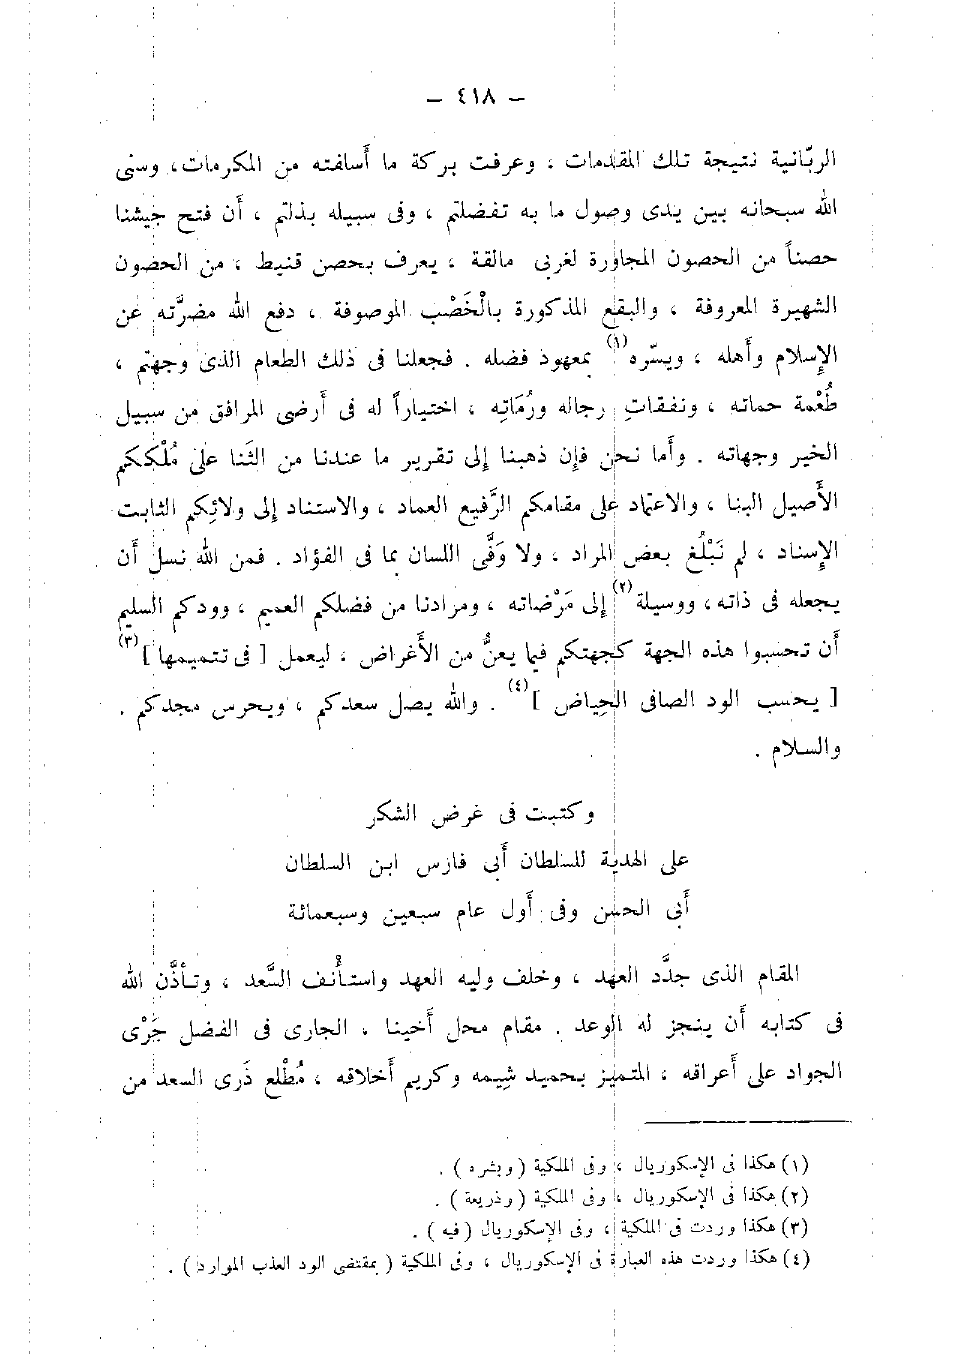 — ٤١٨ —
الربّانية نتيجة تلك المقدمات ، وعرفت بركة ما أسلفته من المكرمات، وسنى
الله سبحانه بين يدى وصول ما به تفضلتم ، وفى سبيله بذلتم ، أن فتح جيشنا
حصناً من الحصون المجاورة لغربى مالقة ، يعرف بحصن قنيط ، من الحصون
الشهيرة المعروفة ، والبقع المذكورة بالْخَصْب الموصوفة ، دفع الله مضرَّته عن
الإسلام وأهله ، ويسّره(١) بمعهود فضله . فجعلنا فى ذلك الطعام الذى وجهتم ،
طُعْمة حماته ، ونفقاتِ رجاله ورُمَاتِه ، اختياراً له فى أرضى المرافق من سبيل
الخير وجهاته . وأما نحن فإن ذهبنا إلى تقرير ما عندنا من الثَنا على مُلْككم
الأَصيل البنا ، والاعتماد على مقامكم الرَّفيع العماد ، والاستناد إلى ولائِكم الثابت
الإِسناد ، لم نَبْلُغ بعض المراد ، ولا وَفَّى اللسان بما فى الفؤاد . فمن الله نسل أن
يجعله فى ذاته، ووسيلة(٢) إلى مَرْضاته ، ومرادنا من فضلكم العميم ، وودكم السليم
أن تحسبوا هذه الجهة كجهتكم فيما يعنُّ من الأَغراض ، ليعمل [ فى تتميمها ](٣)
[ يحسب الود الصافى الحِياض ](٤) . والله يصل سعدكم ، ويحرس مجدكم .
والسلام .
وكتبت فى غرض الشكر
على الهدية للسلطان أبى فارس ابن السلطان
أبى الحسن وفى أول عام سبعين وسبعمائة
المقام الذى جدَّد العهد ، وخلف وليه العهد واستأنف السَّعد ، وتأذَّن الله
فى كتابه أن ينجز له الوعد . مقام محل أخينا ، الجارى فى الفضل جَرْى
الجواد على أعراقه ، المتميز بحميد شِيمه وكريم أخلاقه ، مُطْلع ذَرى السعد من
(١) هكذا فى الإسكوريال ، وفى الملكية ( وبشره ) .
(٢) هكذا فى الإسكوريال ، وفى الملكية ( وذريعة ) .
(٣) هكذا وردت فى الملكية ، وفى الإسكوريال ( فيه ) .
(٤) هكذا وردت هذه العبارة فى الإسكوريال ، وفى الملكية ( بمقتضى الود العذب الموارد ) .